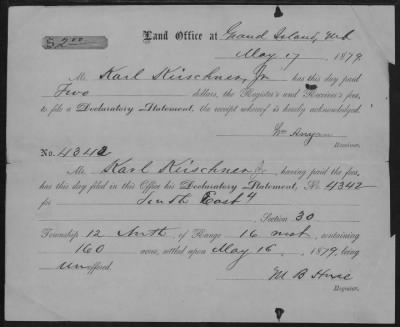 $2.00
Land Office at Grand Island, Neb
May 17 1879
Mr. Karl Kirschner, Jr has this day paid
Two dollars, the Register's and Receiver's fees,
to file a Declaratory Statement, the receipt whereof is hereby acknowledged.
Wm Anyan
Receiver.
No. 4342
Mr. Karl Kirschner Jr, having paid the fees,
has this day filed in this Office his Declaratory Statement, No. 4342
for South East 4
Section 30
Township 12 North, of Range 16 west, containing
160 acres, settled upon May 16, 1879, being
Unoffered.
M B
Register.